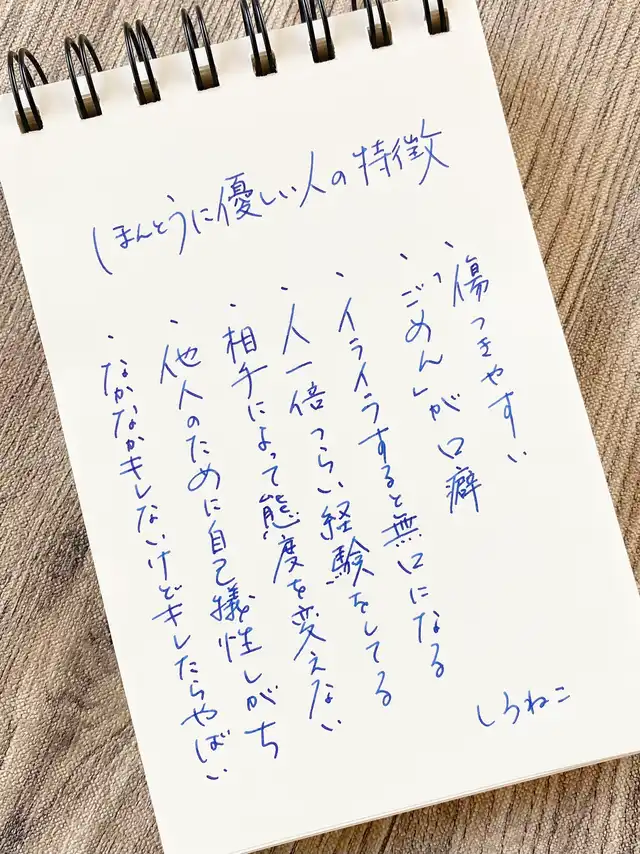 ほんとうに優しい人の特徴
・傷つきやすい
・「ごめん」が口癖
・イライラすると無口になる
・人一倍つらい経験をしてる
・相手によって態度を変えない
・他人のために自己犠牲しがち
・なかなかキレないけどキレたらやばい
しろねこ